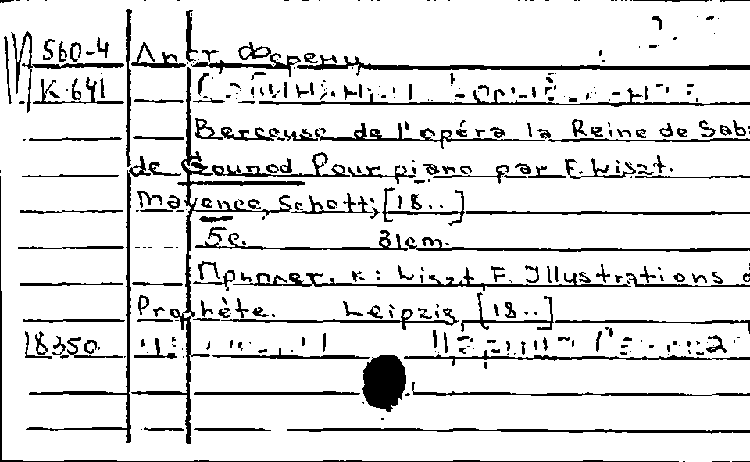 М 560-4 Лист, Ференц.
К-641
Berceuse de l'opéra la Reine de Sab
de Gounod Pour piano par F. Liszt.
Mayence, Schott, [18..]
5с. 31cm.
Приплет. к: Liszt, F. Illustrations d
Prophète. Leipzig, [18..]
18350